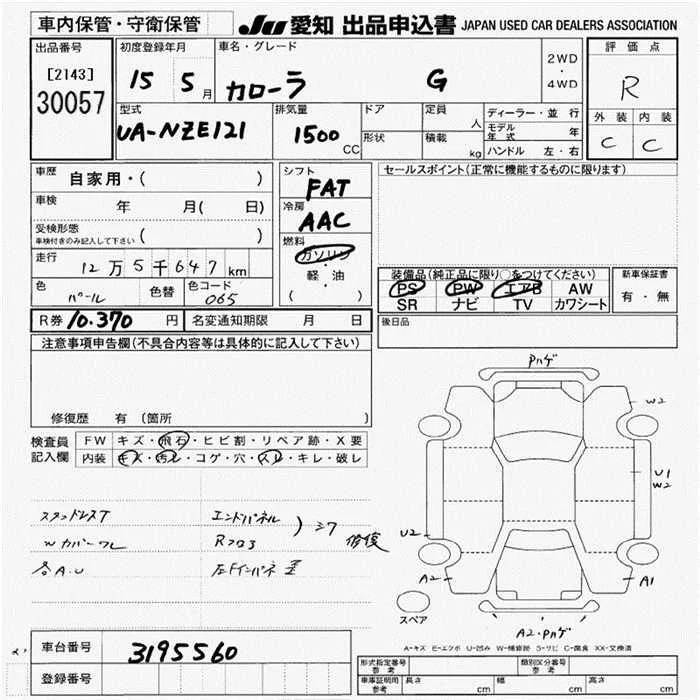 車内保管・守衛保管
JU 愛知 出品申込書 JAPAN USED CAR DEALERS ASSOCIATION
出品番号 初度登録年月 車名・グレード 2WD・4WD 評価点
[2143]
30057
15 5月 カローラ G R
型式 排気量 ドア 定員 人 ディーラー・並行
UA-NZE121 1500 CC 形状 積載 kg モデル年式 年
ハンドル 左・右
外装 内装
C C
車歴 自家用・( )
車検 年 月( 日)
受検形態
車検付きのみ記入して下さい ( )
走行 12万5千647km
色 パール 色替 色コード 065
シフト FAT
冷房 AAC
燃料 ガソリン・軽・油
( )
セールスポイント(正常に機能するものに限ります)
装備品(純正品に限り○をつけてください) 新車保証書
PS PW エアB AW 有・無
SR ナビ TV カワシート
後日品
R券 10.370 円 名変通知期限 月 日
注意事項申告欄(不具合内容等は具体的に記入して下さい)
修復歴 有 (箇所
検査員記入欄 FW キズ・飛石・ヒビ割・リペア跡・X要
内装 キズ・汚レ・コゲ・穴・スレ・キレ・破レ
スタッドレスT エンドパネル
Wカバーワレ Rフロア シワ 修復
各A.U 左Fインパネ
Pハゲ
W2
U1
W2
U2
A2 A1
スペア
A2・Pハゲ
A-キズ E-エクボ U-凹み W-補修跡 S-サビ C-腐食 XX-交換済
車台番号 3195560
登録番号
形式指定番号 参考 類別区分番号 参考
車庫証明用 参考 長さ cm 幅 cm 高さ cm